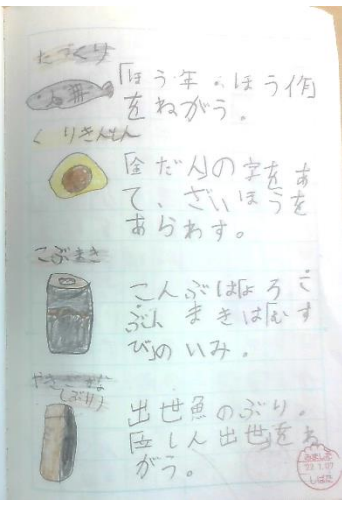 たづくり
「ほう年・ほう作」
をねがう。
くりきんとん
「金だん」の字をあ
て、ざいほうを
あらわす。
こぶまき
こんぶは「よろこ
ぶ」、まきは「むす
び」のいみ。
やき
出世魚のぶり。
しん出世」をね
がう。
みました
しばた